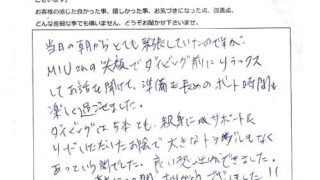 お客様の感じた良かった事、嬉しかった事、お気づきになった点、改善点、
どんな些細な事でも構いません、どうぞお聞かせ下さいませ。
当日の朝からとても緊張していたのですが、
MIUさんの笑顔でダイビング前にリラックス
してお話を聞けて、準備も長めのボート時間も
楽しく過ごせました。
ダイビングは5本とも、親身にサポート&
リードいただいたお陰で大きなトラブルもなく
あっという間でした。良い想い出ができました。
ありがとうございました!!